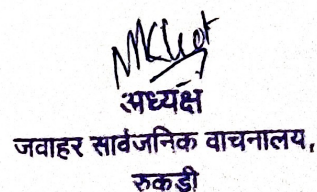 अध्यक्ष
जवाहर सार्वजनिक वाचनालय,
रुकडी